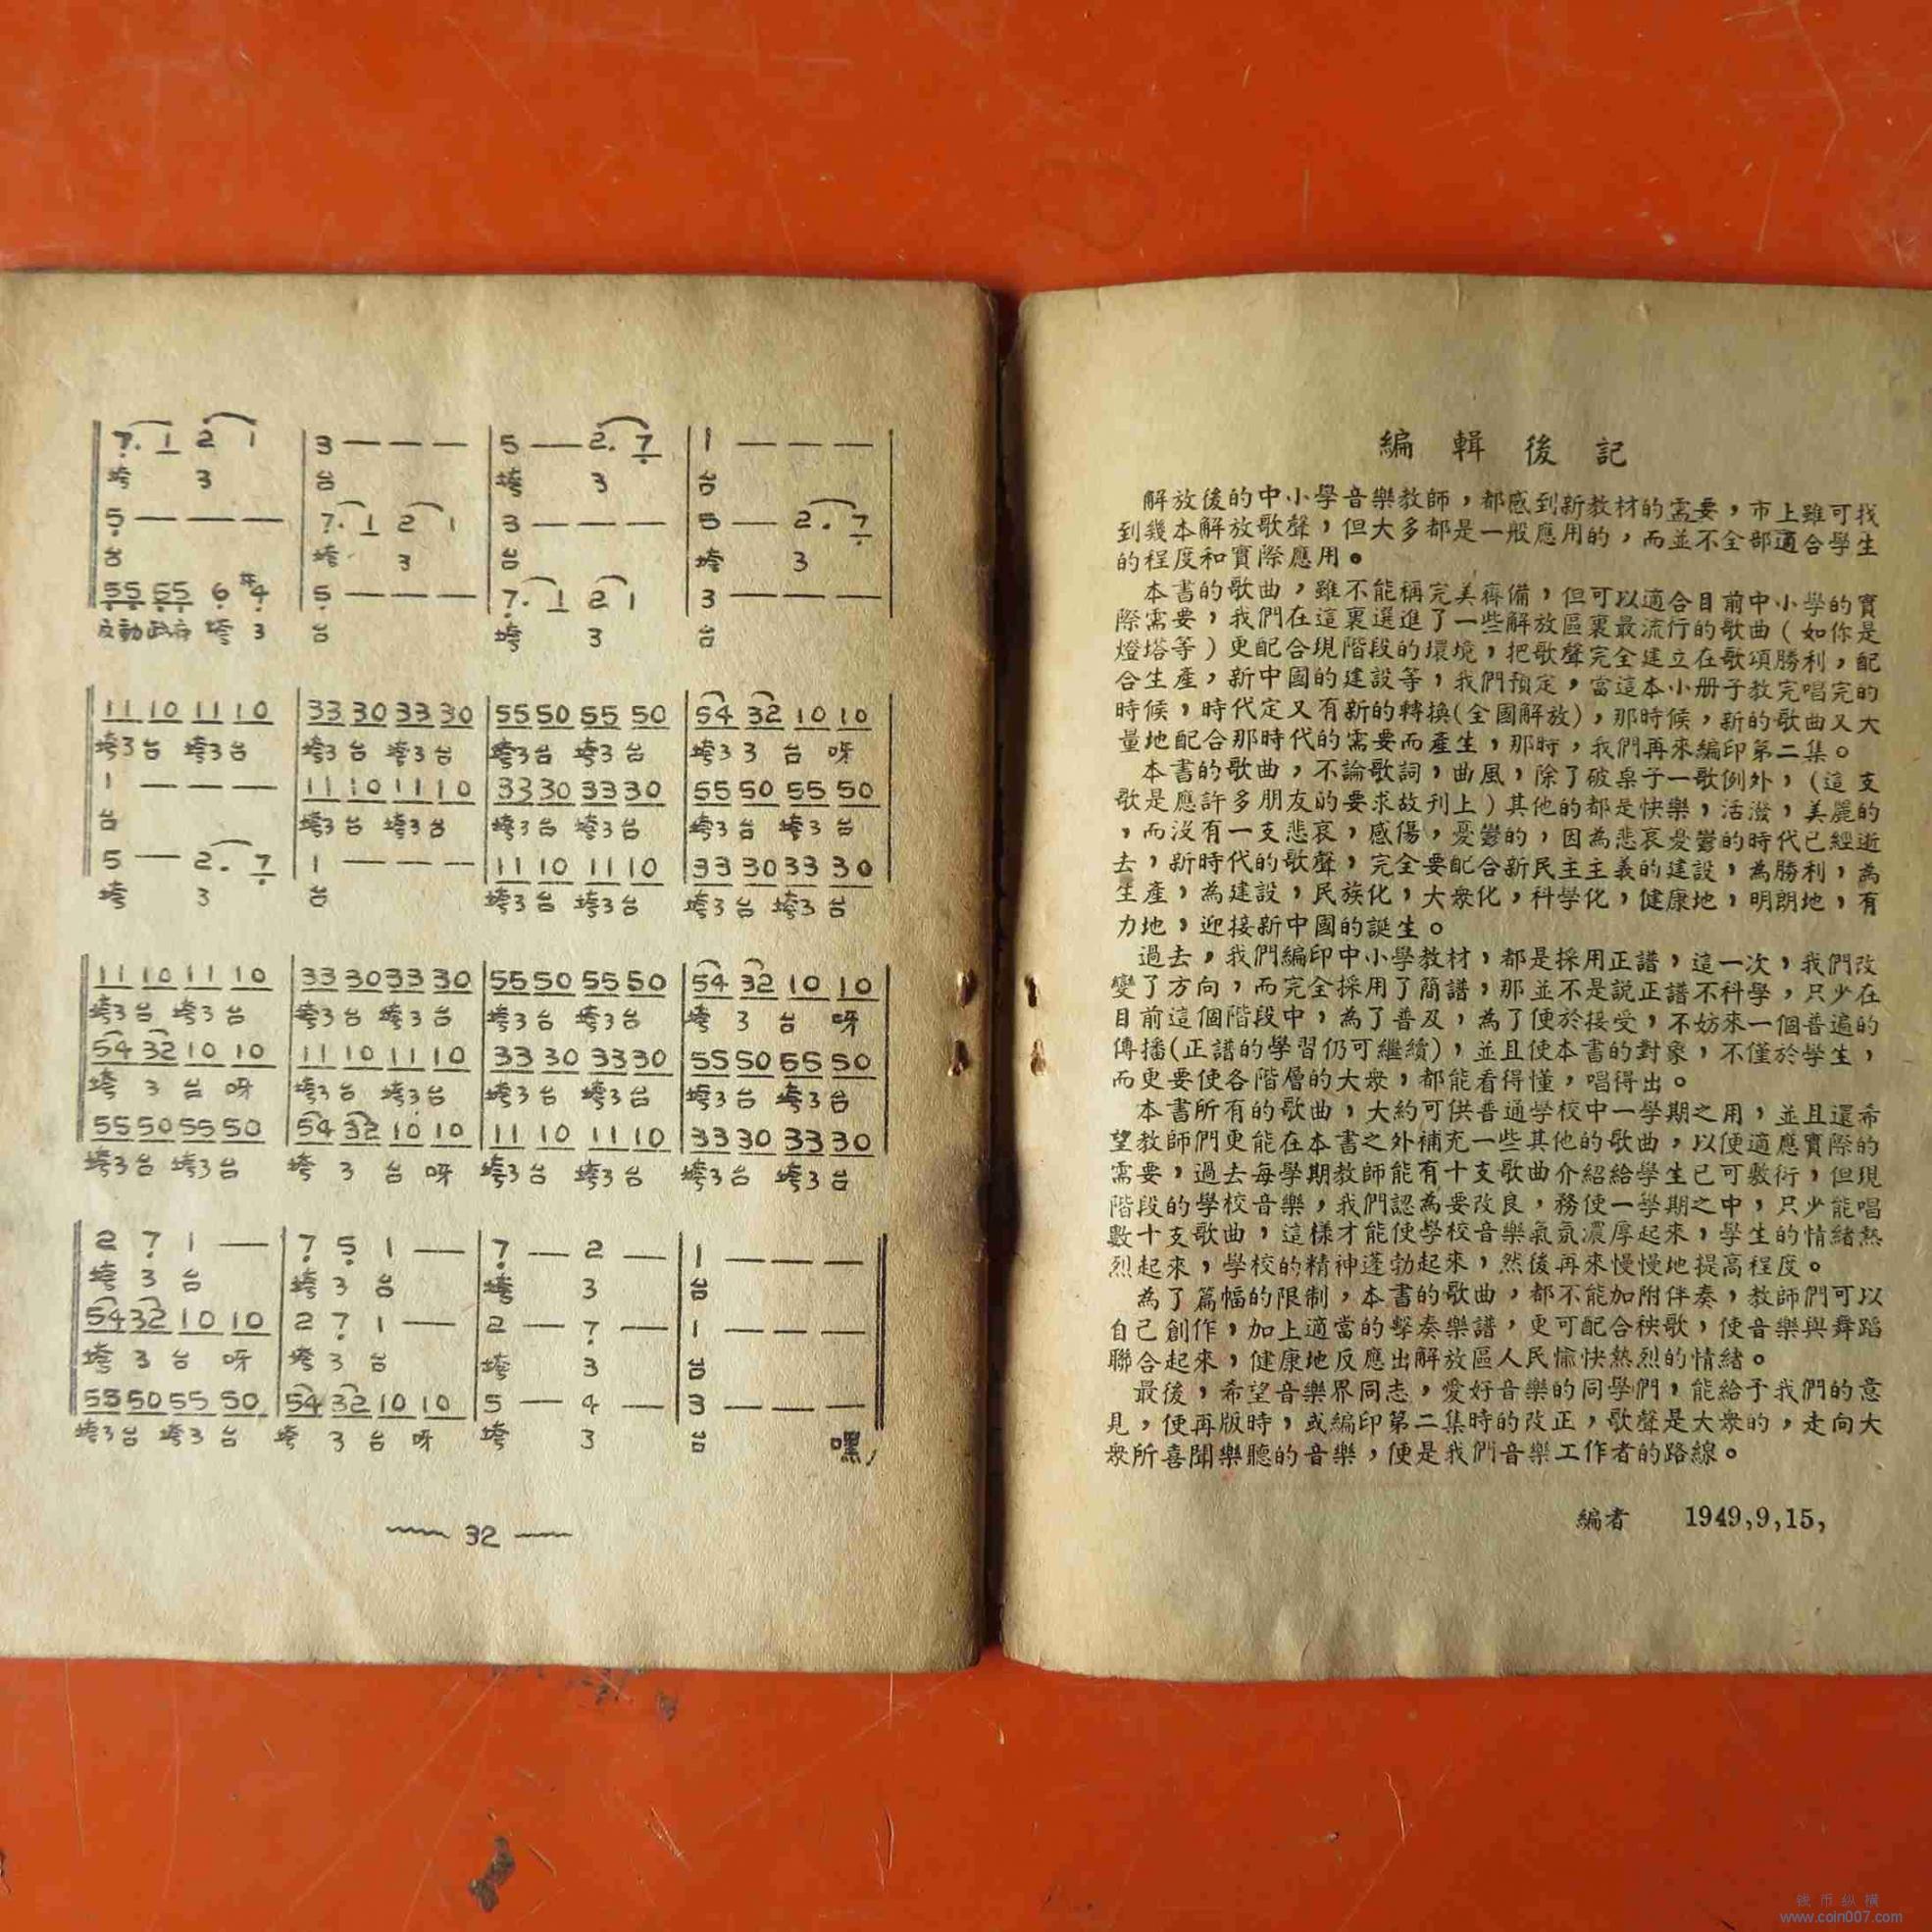 7. 1 2 1 | 3 — — — | 5 — 2. 7 | 1 — — —
垮 3 台 垮 3 台
5 — — — | 7. 1 2 1 | 3 — — — | 5 — 2. 7
台 垮 3 台 垮 3
55 55 6 #4 | 5 — — — | 7. 1 2 1 | 3 — — —
反動政府 垮 3 台 垮 3 台
11 10 11 10 | 33 30 33 30 | 55 50 55 50 | 54 32 10 10
垮3台 垮3台 垮3台 垮3台 垮3台 垮3台 垮3 3 台 呀
1 — — — | 11 10 11 10 | 33 30 33 30 | 55 50 55 50
台 垮3台 垮3台 垮3台 垮3台 垮3台 垮3台
5 — 2. 7 | 1 — — — | 11 10 11 10 | 33 30 33 30
垮 3 台 垮3台 垮3台 垮3台 垮3台
11 10 11 10 | 33 30 33 30 | 55 50 55 50 | 54 32 10 10
垮3台 垮3台 垮3台 垮3台 垮3台 垮3台 垮 3 台 呀
54 32 10 10 | 11 10 11 10 | 33 30 33 30 | 55 50 55 50
垮 3 台 呀 垮3台 垮3台 垮3台 垮3台 垮3台 垮3台
55 50 55 50 | 54 32 10 10 | 11 10 11 10 | 33 30 33 30
垮3台 垮3台 垮 3 台 呀 垮3台 垮3台 垮3台 垮3台
2 7 1 — | 7 5 1 — | 7 — 2 — | 1 — — —
垮 3 台 垮 3 台 垮 3 台
54 32 10 10 | 2 7 1 — | 2 — 7 — | 1 — — —
垮 3 台 呀 垮 3 台 垮 3 台
55 50 55 50 | 54 32 10 10 | 5 — 4 — | 3 — — —
垮3台 垮3台 垮 3 台 呀 垮 3 台 嘿!
32
編輯後記
解放後的中小學音樂教師，都感到新教材的需要，市上雖可找
到幾本解放歌聲，但大多都是一般應用的，而並不全部適合學生
的程度和實際應用。
本書的歌曲，雖不能稱完美齊備，但可以適合目前中小學的實
際需要，我們在這裏選進了一些解放區裏最流行的歌曲（如你是
燈塔等）更配合現階段的環境，把歌聲完全建立在歌頌勝利，配
合生產，新中國的建設等，我們預定，當這本小册子教完唱完的
時候，時代定又有新的轉換(全國解放)，那時候，新的歌曲又大
量地配合那時代的需要而產生，那時，我們再來編印第二集。
本書的歌曲，不論歌詞，曲風，除了破桌子一歌例外，（這支
歌是應許多朋友的要求故刋上）其他的都是快樂，活潑，美麗的
，而没有一支悲哀，感傷，憂鬱的，因為悲哀憂鬱的時代已經逝
去，新時代的歌聲，完全要配合新民主主義的建設，為勝利，為
生產，為建設，民族化，大衆化，科學化，健康地，明朗地，有
力地，迎接新中國的誕生。
過去，我們編印中小學教材，都是採用正譜，這一次，我們改
變了方向，而完全採用了簡譜，那並不是説正譜不科學，只少在
目前這個階段中，為了普及，為了便於接受，不妨來一個普遍的
傳播(正譜的學習仍可繼續)，並且使本書的對象，不僅於學生，
而更要使各階層的大衆，都能看得懂，唱得出。
本書所有的歌曲，大約可供普通學校中一學期之用，並且還希
望教師們更能在本書之外補充一些其他的歌曲，以便適應實際的
需要，過去每學期教師能有十支歌曲介紹給學生已可敷衍，但現
階段的學校音樂，我們認為要改良，務使一學期之中，只少能唱
數十支歌曲，這樣才能使學校音樂氣氛濃厚起來，學生的情緒熱
烈起來，學校的精神蓬勃起來，然後再來慢慢地提高程度。
為了篇幅的限制，本書的歌曲，都不能加附伴奏，教師們可以
自己創作，加上適當的擊奏樂譜，更可配合秧歌，使音樂與舞蹈
聯合起來，健康地反應出解放區人民愉快熱烈的情緒。
最後，希望音樂界同志，愛好音樂的同學們，能給予我們的意
見，便再版時，或編印第二集時的改正，歌聲是大衆的，走向大
衆所喜聞樂聽的音樂，便是我們音樂工作者的路線。
編者 1949,9,15,
钱币纵横
www.coin007.com